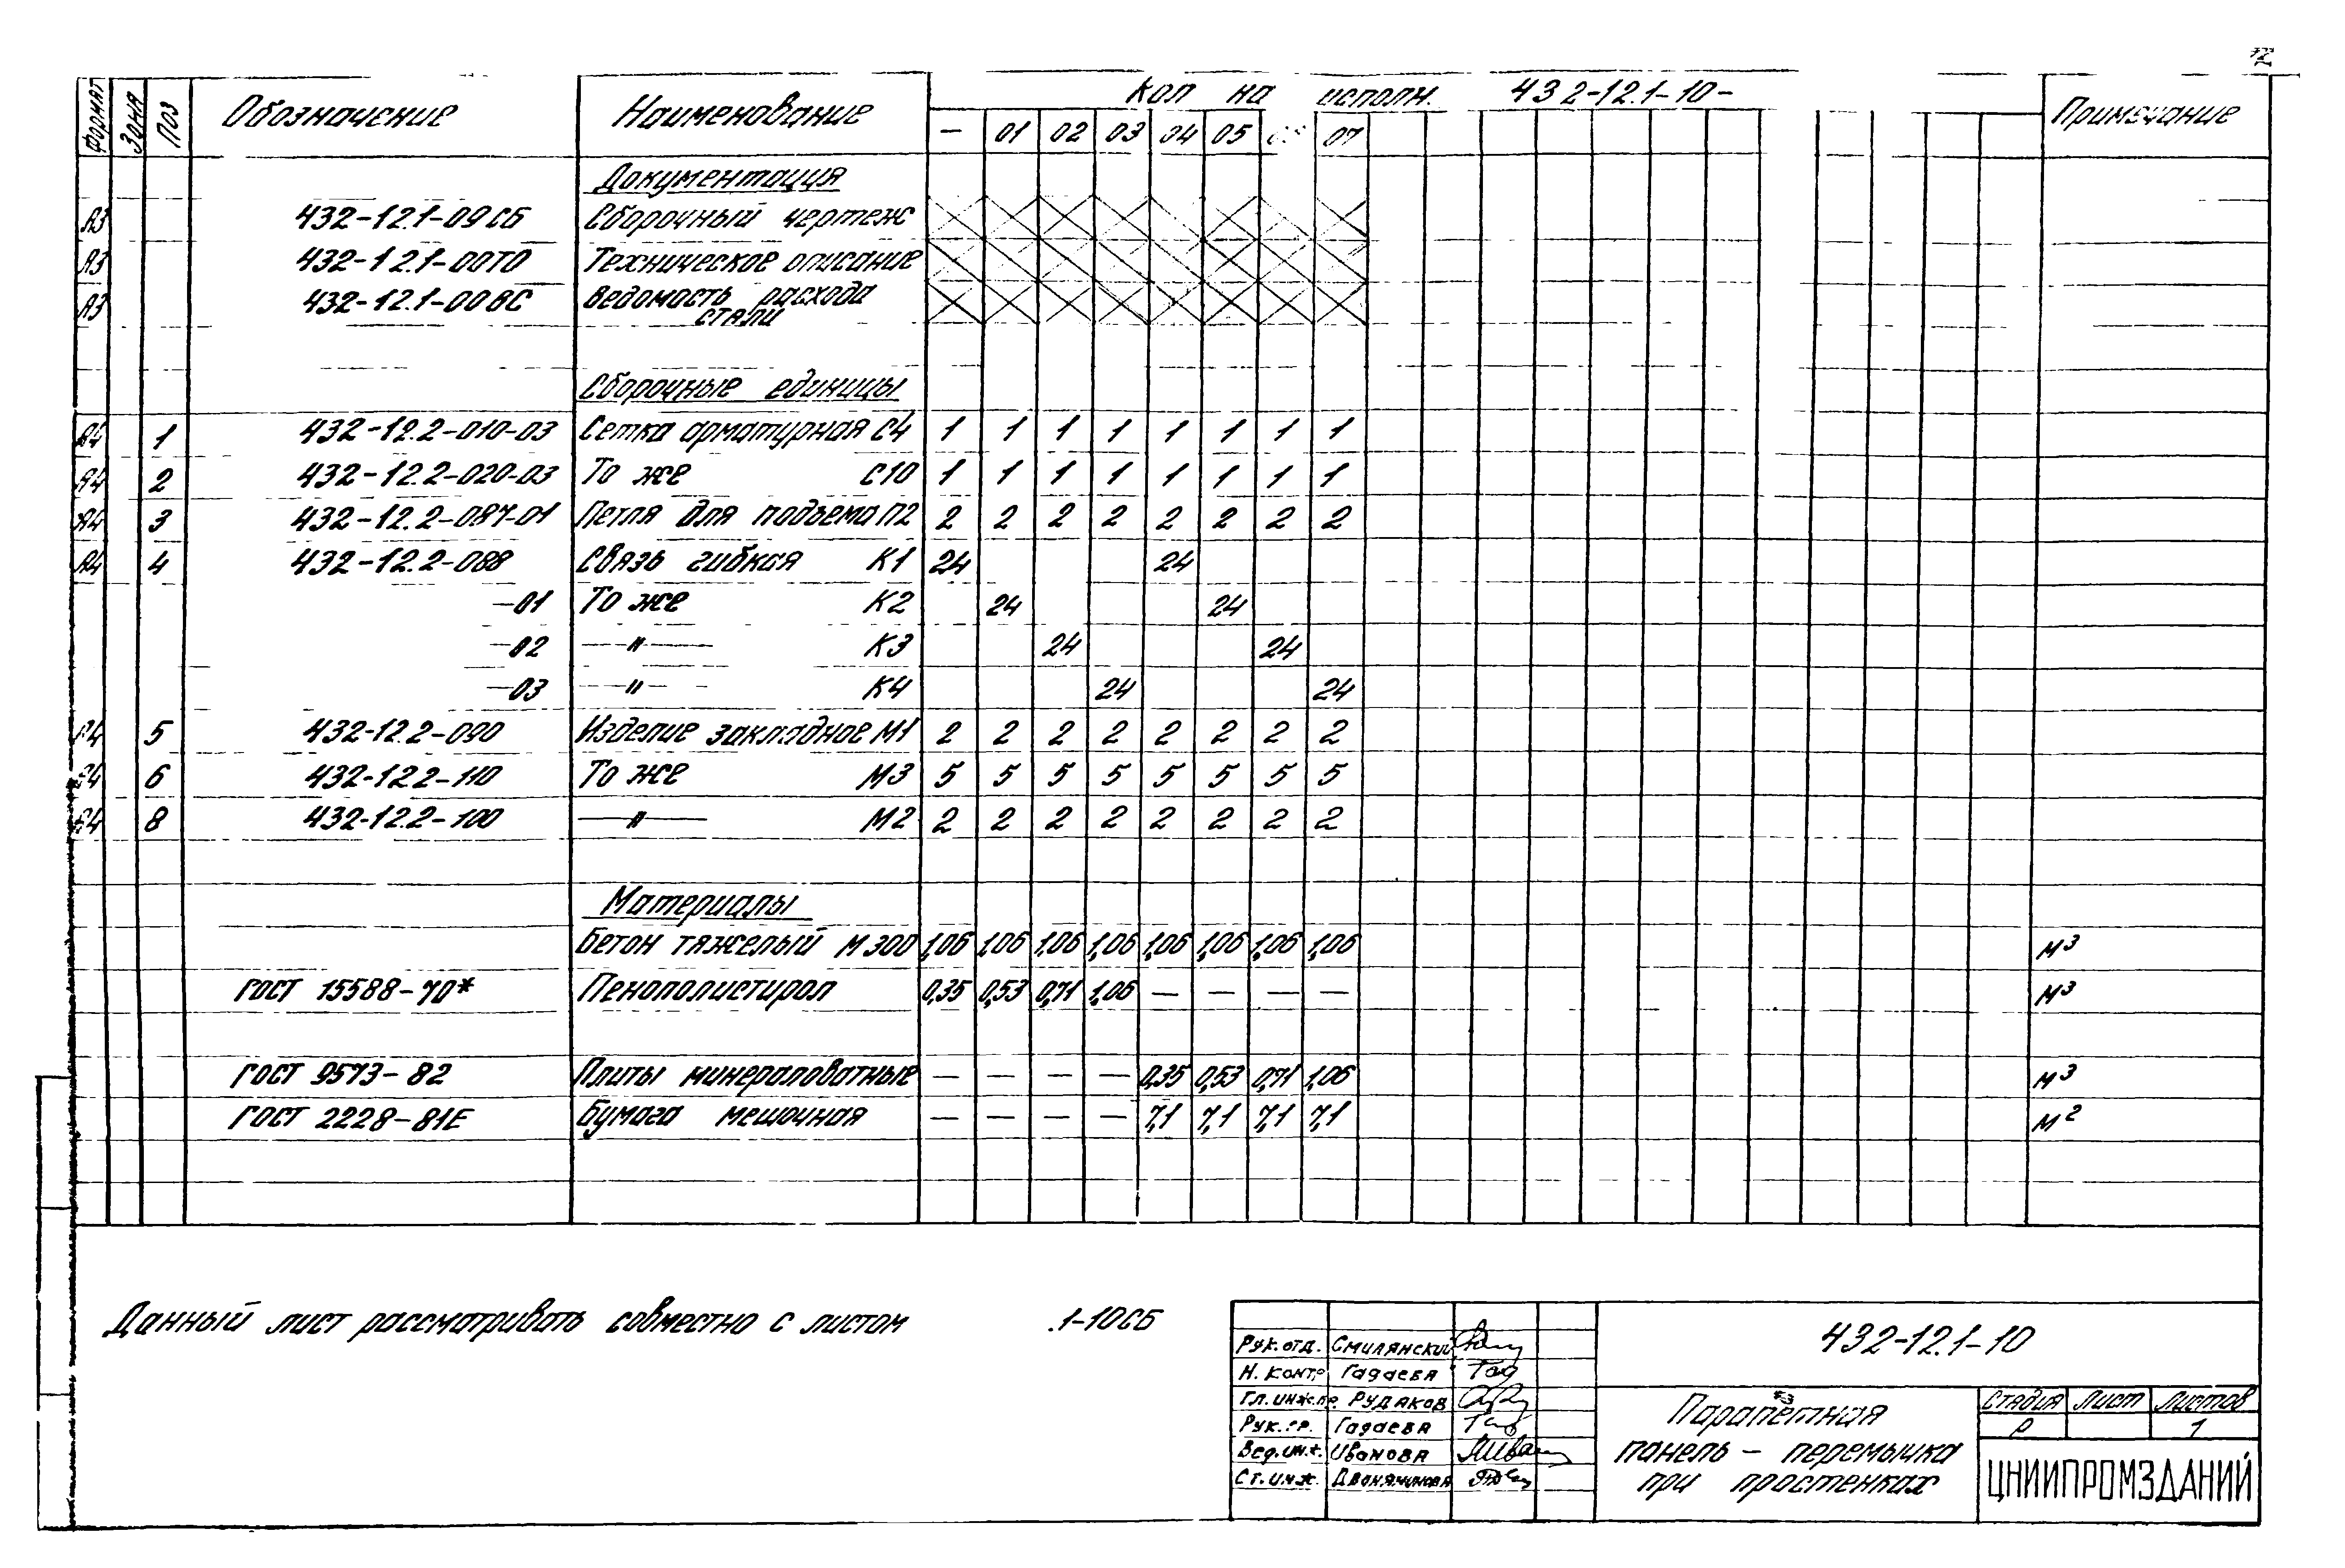 Формат Зона Поз Обозначение Наименование Кол на исполн. 432-12.1-10- Примечание
— 01 02 03 04 05 07
Документация
А3 432-12.1-09СБ Сборочный чертеж
А3 432-12.1-00ТО Техническое описание
А3 432-12.1-00ВС Ведомость расхода
стали
Сборочные единицы
А4 1 432-12.2-010-03 Сетка арматурная С4 1 1 1 1 1 1 1 1
А4 2 432-12.2-020-03 То же С10 1 1 1 1 1 1 1 1
А4 3 432-12.2-087-01 Петля для подъема П2 2 2 2 2 2 2 2 2
А4 4 432-12.2-088 Связь гибкая К1 24 24
-01 То же К2 24 24
-02 —"— К3 24 24
-03 —"— К4 24 24
А4 5 432-12.2-090 Изделие закладное М1 2 2 2 2 2 2 2 2
А4 6 432-12.2-110 То же М3 5 5 5 5 5 5 5 5
А4 8 432-12.2-100 —"— М2 2 2 2 2 2 2 2 2
Материалы
Бетон тяжелый М300 1,06 1,06 1,06 1,06 1,06 1,06 1,06 1,06 м3
ГОСТ 15588-70* Пенополистирол 0,35 0,53 0,71 1,06 — — — — м3
ГОСТ 9573-82 Плиты минераловатные — — — — 0,35 0,53 0,71 1,06 м3
ГОСТ 2228-81Е Бумага мешочная — — — — 7,1 7,1 7,1 7,1 м2
Данный лист рассматривать совместно с листом .1-10СБ
Рук. отд. Смилянский
Н. контр Гадаева
Гл. инж. пр. Рудаков
Рук. гр. Гадаева
Вед. инж. Иванова
Ст. инж. Двоняминова
432-12.1-10
Парапетная
панель - перемычка
при простенках
Стадия Лист Листов
Р 1
ЦНИИПРОМЗДАНИЙ